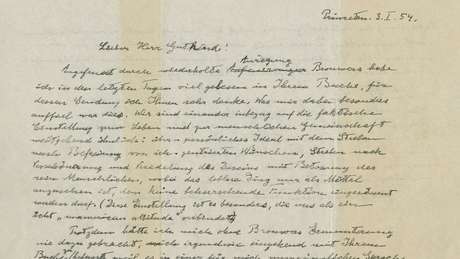 Princeton. 3.I. 54.
Lieber Herr Gutkind!
Angefeuert durch wiederholte Anregung Brouwers habe
ich in den letzten Tagen viel gelesen in Ihrem Buche, für
dessen Sendung ich Ihnen sehr danke. Was mir dabei besonders
auffiel war dies. Wir sind einander inbezug auf die faktische
Einstellung zum Leben und zur menschlichen Gemeinschaft
weitgehend ähnlich: Ideal mit dem Streben
nach Befreiung von ich-zentrierten Wünschen, Streben nach
Verschönerung und Veredelung des Daseins mit Betonung des
rein Menschlichen, wobei das leblose Ding nur als Mittel
anzusehen ist, dem keine beherrschende Funktion eingeräumt
werden darf. (Diese Einstellung ist es besonders, die uns als ein
echt "unamerican attitude" verbindet)
Trotzdem hätte ich mich ohne Brouwers Ermunterung
nie dazu gebracht, mich irgendwie eingehend mit Ihrem
weil es in einer für mich Sprache